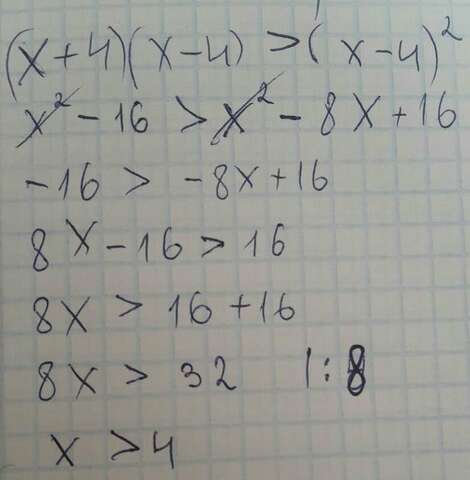 (x+4)(x-4) > (x-4)²
x² - 16 > x² - 8x + 16
-16 > -8x + 16
8x - 16 > 16
8x > 16 + 16
8x > 32 |:8
x > 4